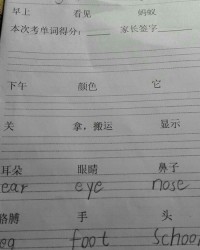 早上 看见 蚂蚁
本次考单词得分： 家长签字
下午 颜色 它
关 拿，搬运 显示
耳朵 眼睛 鼻子
ear eye nose
胳膊 手 头
eg foot school